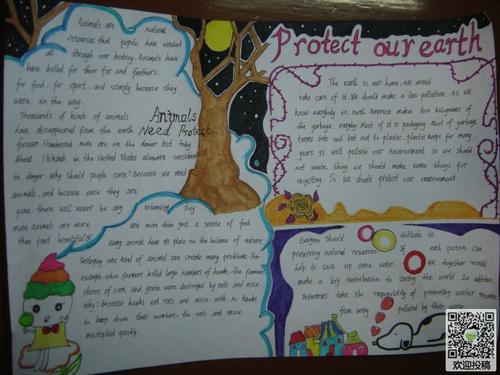 Animals are natural
resources that people have wasted
all through our history. Animals have
been killed for their fur and feathers,
for food, for sport, and simply because they
were in the way.
Thousands of kinds of animals
have disappeared from the earth
forever. Hundreds more are on the danger list today
About 170 kinds in the United States are considered
in danger. Why should people care? Because we need
animals, and because once they are
gone, there will never be any
more. Animals are more
than just beautiful
interesting they
are more than just a source of food
every animal has its place in the balance of nature
Destroying one kind of animal can create many problems. For
example, when farmers killed large numbers of hawks, the farmers'
stores of corn and grain were destroyed by rats and mice.
Why? Because hawks eat rats and mice, with no hawks
to keep down their numbers, the rats and mice
multiplied quickly.
Animals
Need Protect
Protect our earth
The earth is our home. We must
take care of it. We should make a less pollution. As we
know everybody in north America makes two kilograms of
the garbage everyday. Most of it is packaging. Most of garbage
turns into soil but not the plastic. plastic keeps for many
years it will pollute our environment. So we should
not waste thing we should make some things for
recycling. So we should protect our environment.
Everyone should dedicate to
preserving natural resources. If each person can
help to save up some water, we together would
make a big contribution to saving the world. In addition,
industries take the responsibility of preventing water resources
from being polluted by their waste.
欢迎投稿